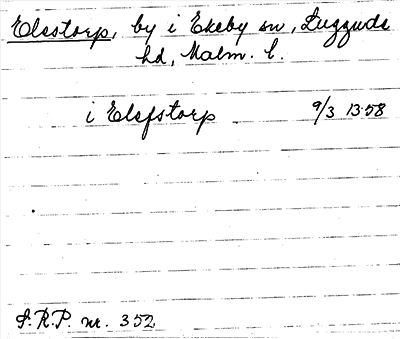 Elestorp, by i Ekeby sn, Luggude
hd, Malm. l.
i Elefstorp 9/3 1358
S.R.P. nr. 352